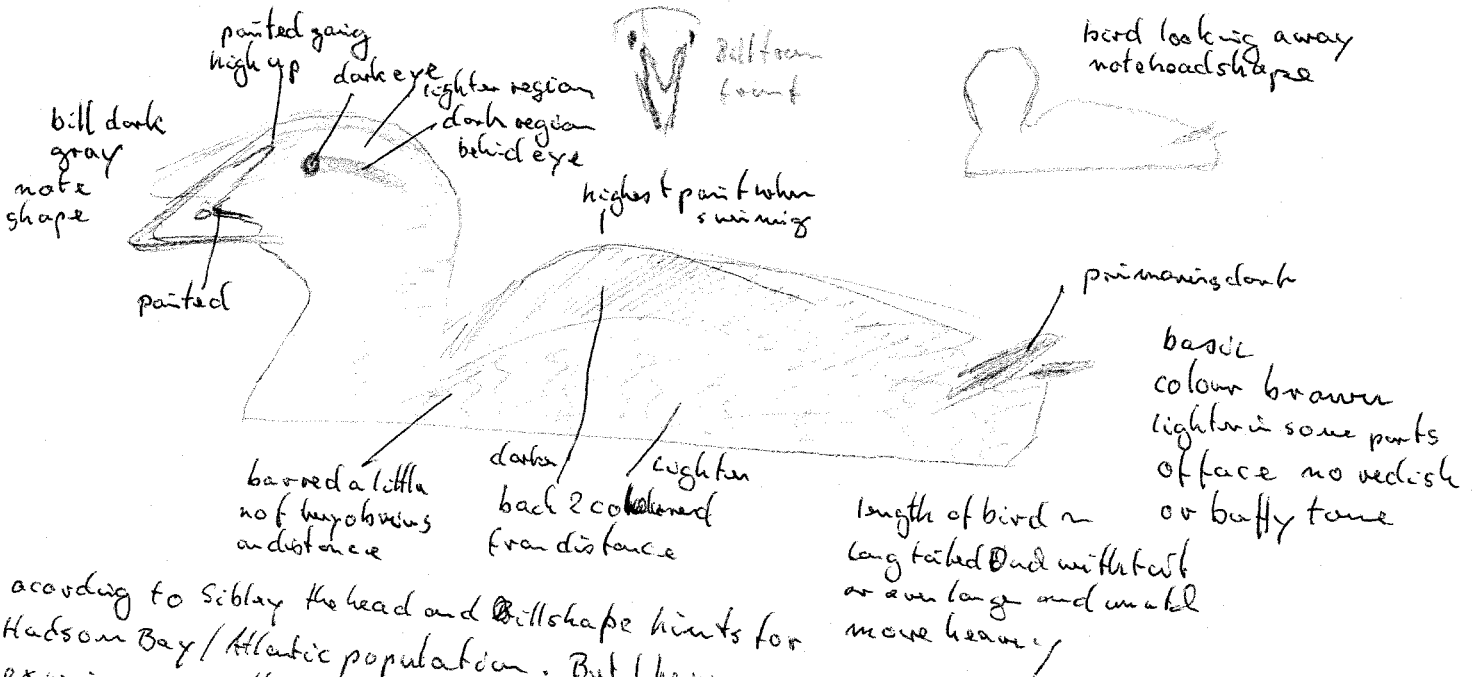 pointed going
high up
dark eye
lighter region
dark region
behind eye
bill dark
gray
note
shape
pointed
Bill from
front
bird looking away
note head shape
highest point when
swimming
primaries dark
basic
colour brown
lighter in some parts
of face no redish
or buffy tone
barred a little
not very obvious
on distance
darker
lighter
back 2 coloured
from distance
length of bird ~
long tailed Duck with tail
or even longer and
more heavy
acording to Sibley the head and Billshape hints for
Hudson Bay / Atlantic population. But I